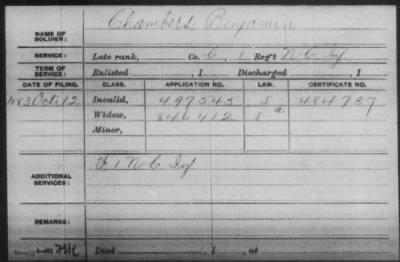 Chambers Benjamin
NAME OF SOLDIER:
SERVICE: Late rank, Co. C, 1 Reg't N.C. Inf
TERM OF SERVICE: Enlisted , 1 Discharged , 1
DATE OF FILING. CLASS. APPLICATION NO. LAW. CERTIFICATE NO.
1883 Oct 12 Invalid, 497545 484757
Widow, 846412
Minor,
ADDITIONAL SERVICES: 1 N C Inf
REMARKS:
Died , 1 , at